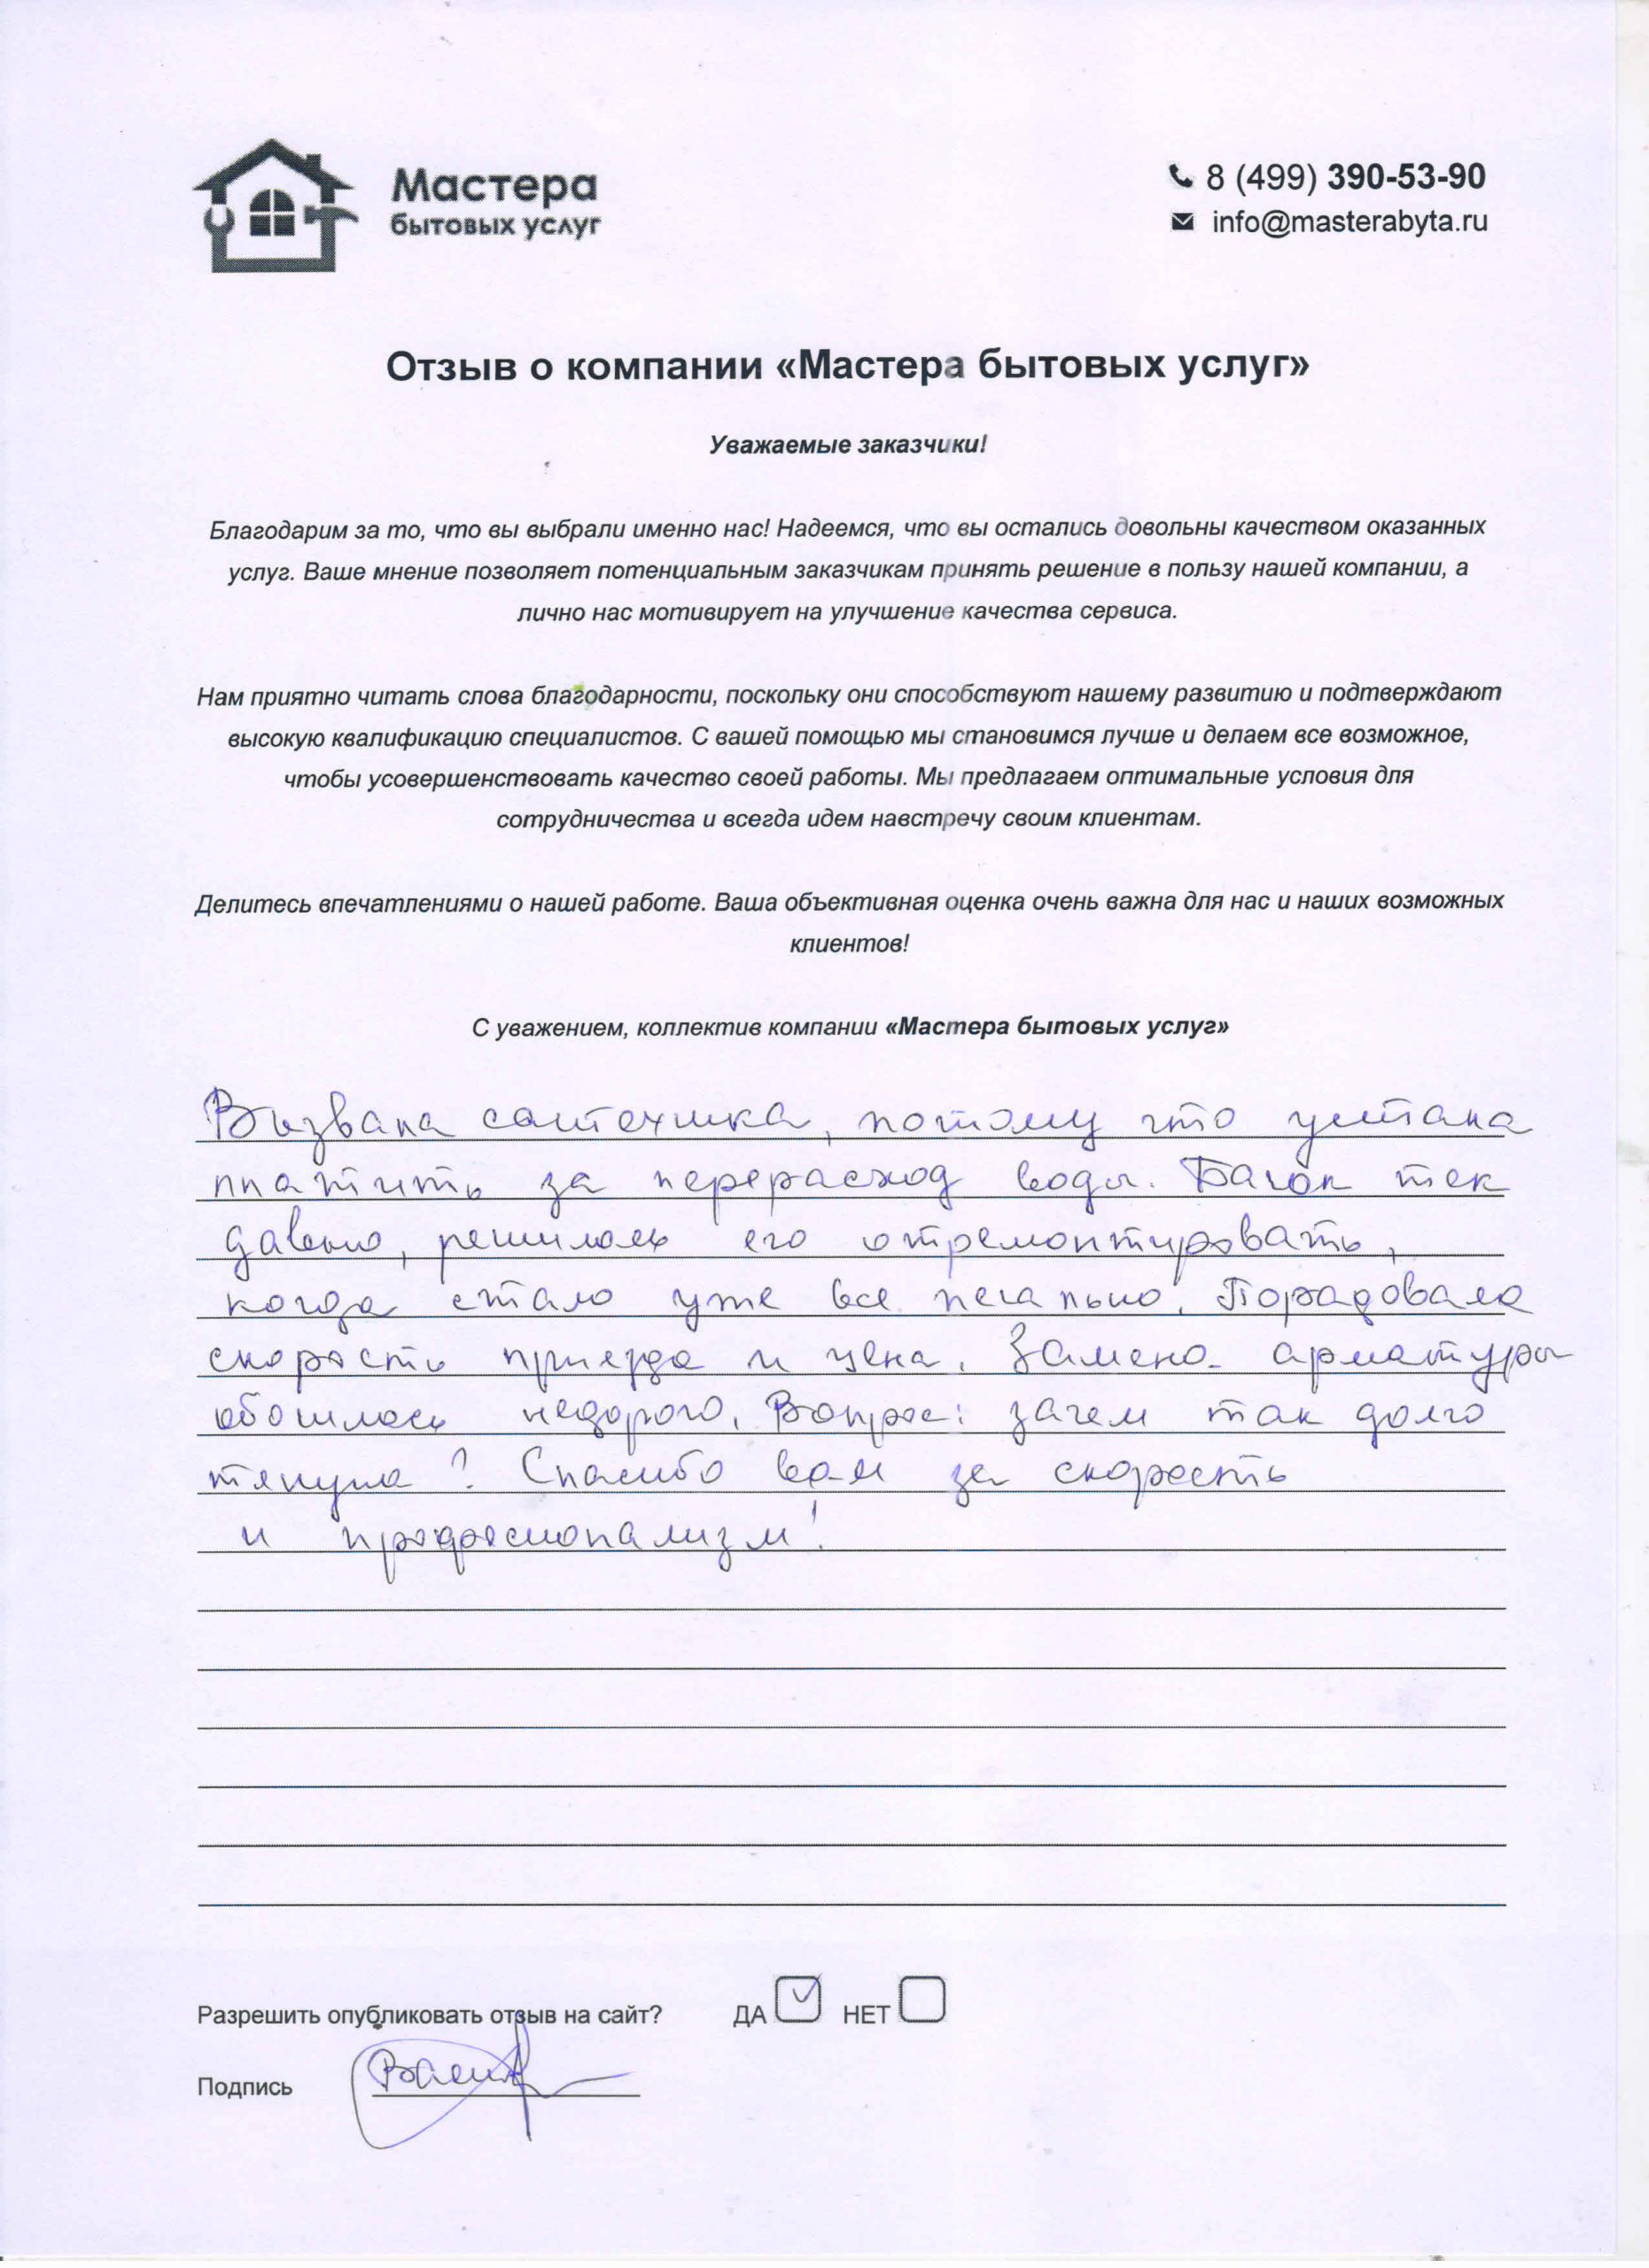 Мастера
бытовых услуг
8 (499) 390-53-90
info@masterabyta.ru
Отзыв о компании «Мастера бытовых услуг»
Уважаемые заказчики!
Благодарим за то, что вы выбрали именно нас! Надеемся, что вы остались довольны качеством оказанных
услуг. Ваше мнение позволяет потенциальным заказчикам принять решение в пользу нашей компании, а
лично нас мотивирует на улучшение качества сервиса.
Нам приятно читать слова благодарности, поскольку они способствуют нашему развитию и подтверждают
высокую квалификацию специалистов. С вашей помощью мы становимся лучше и делаем все возможное,
чтобы усовершенствовать качество своей работы. Мы предлагаем оптимальные условия для
сотрудничества и всегда идем навстречу своим клиентам.
Делитесь впечатлениями о нашей работе. Ваша объективная оценка очень важна для нас и наших возможных
клиентов!
С уважением, коллектив компании «Мастера бытовых услуг»
Вызвала сантехника, потому что устала
платить за перерасход воды. Бачок тек
давно, решилась его отремонтировать,
когда стало уже все печально. Порадовала
скорость приезда и цена. Замена арматуры
обошлась недорого. Вопрос: зачем так долго
тянула? Спасибо вам за скорость
и профессионализм!
Разрешить опубликовать отзыв на сайт? ДА НЕТ
Подпись